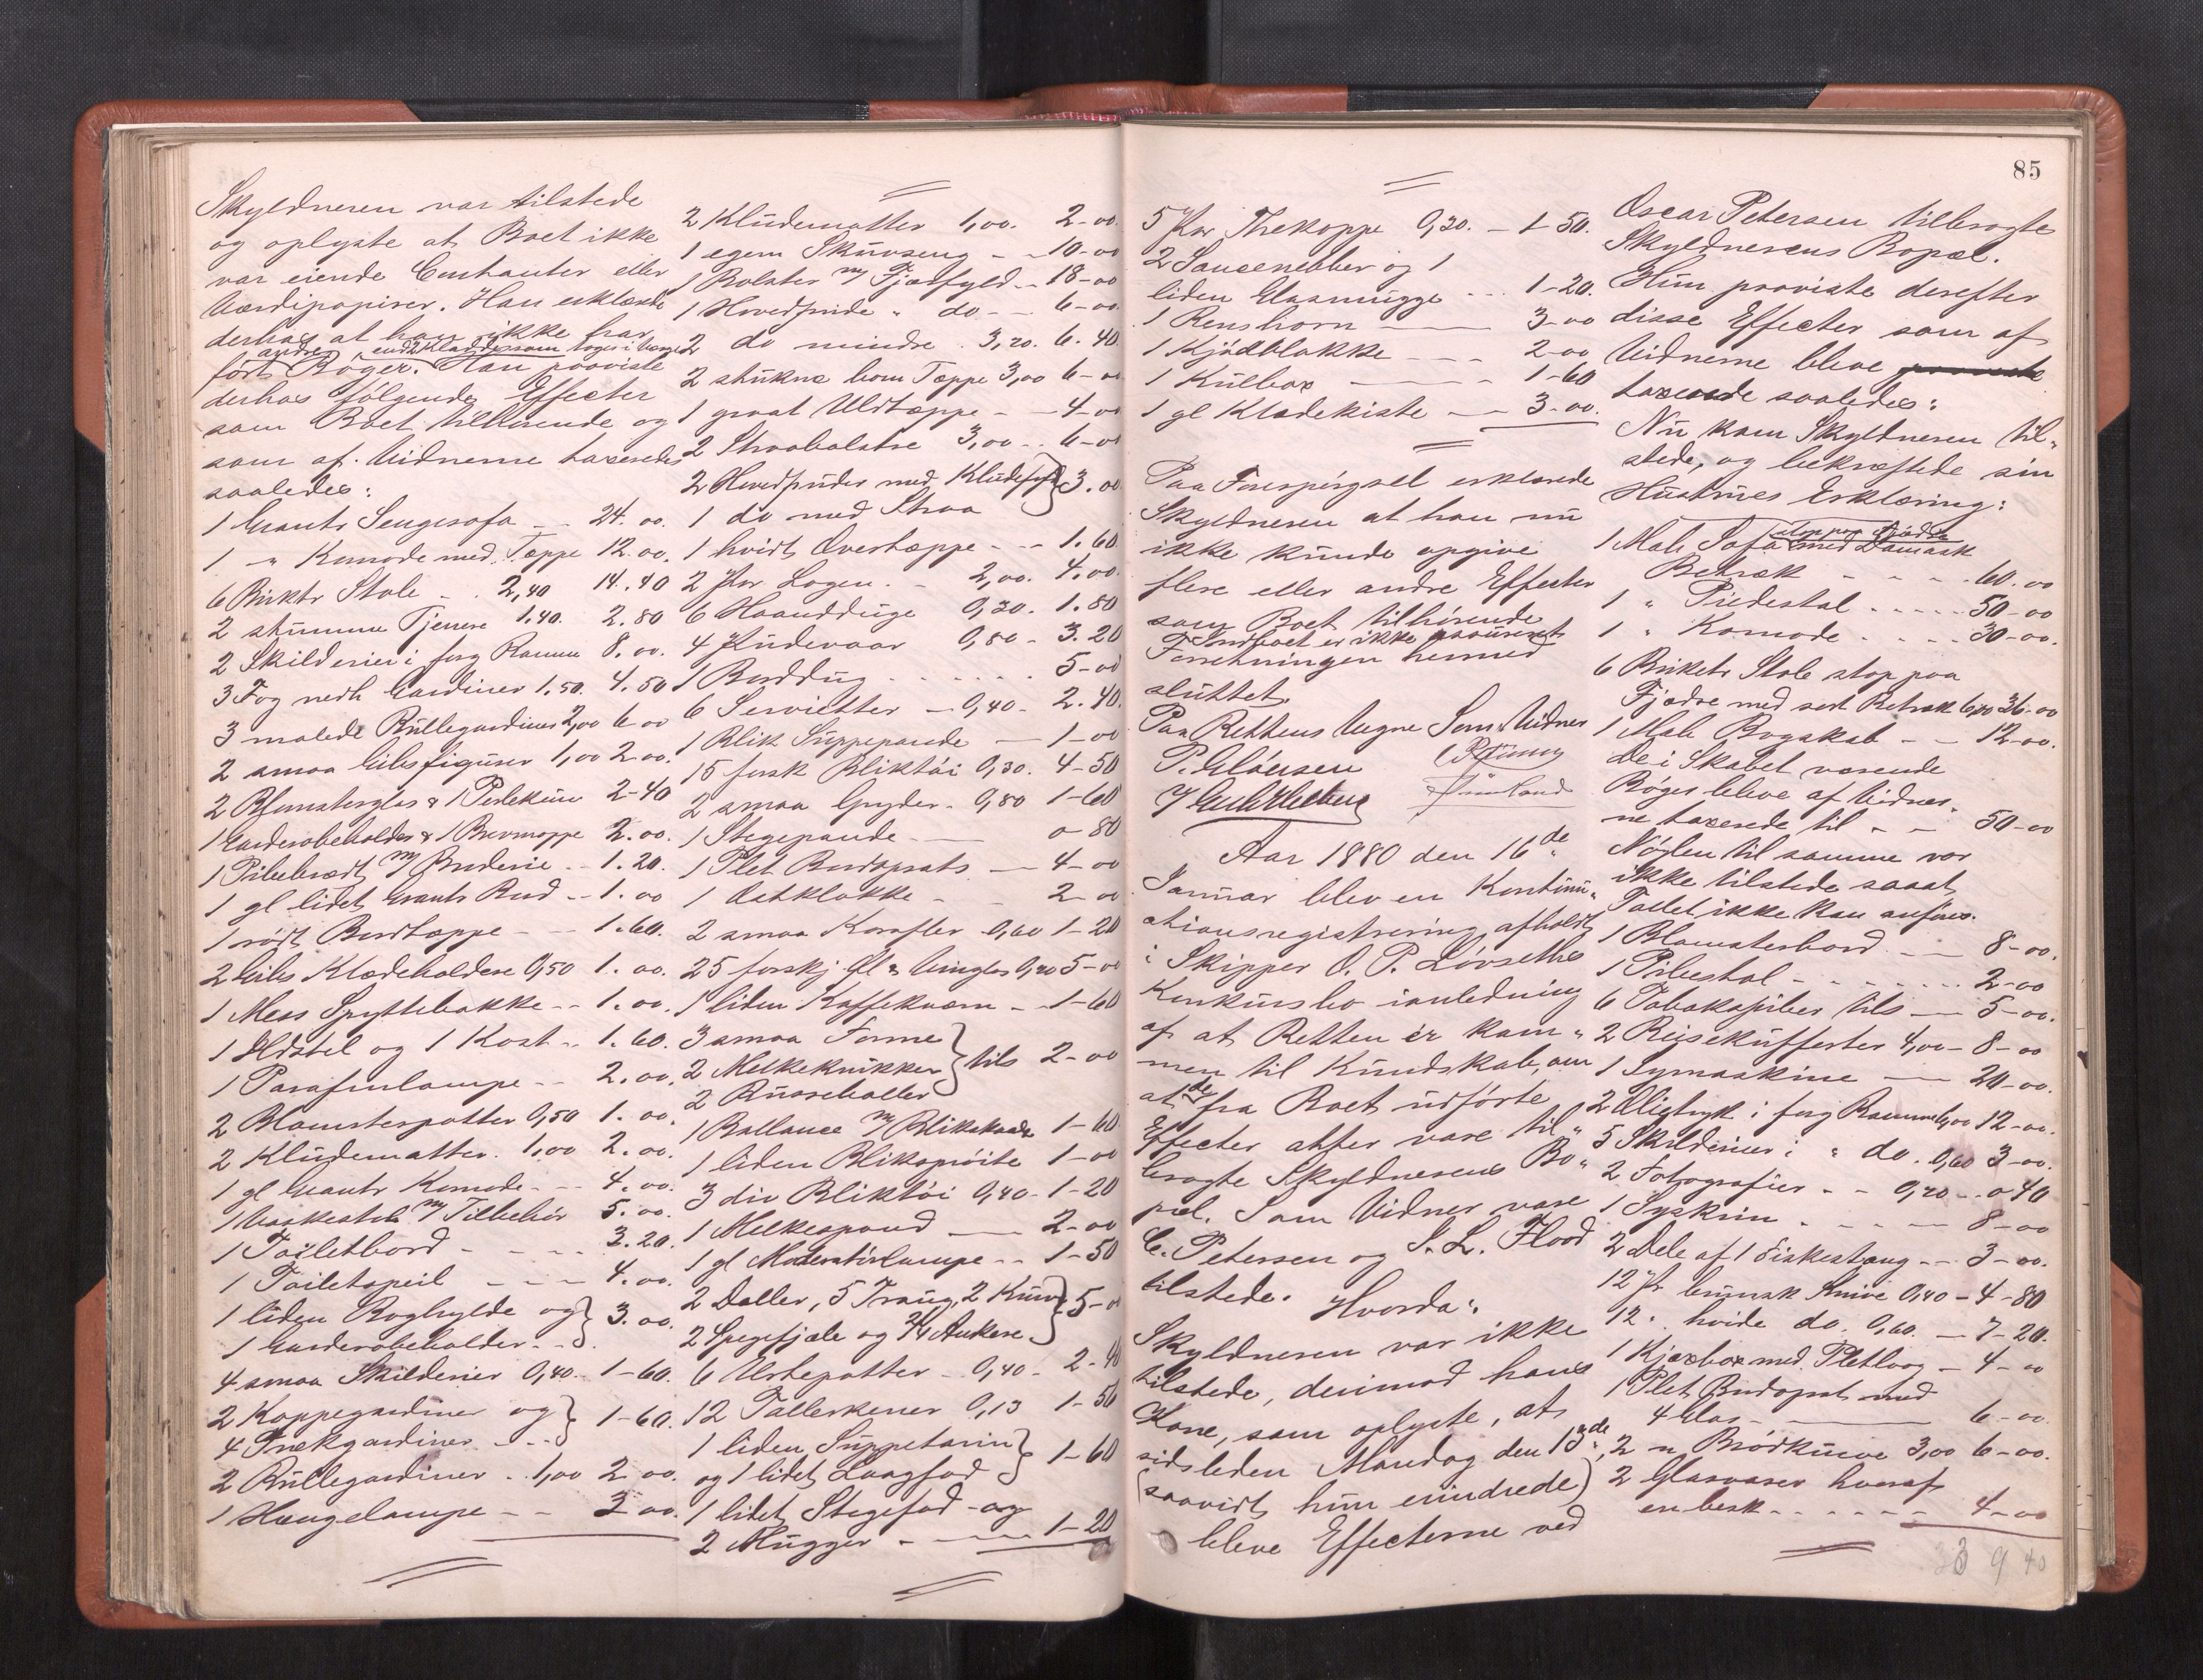 Skyldneren var tilstede
og oplyste at Boet ikke
var eiende Contanter eller
Værdipapirer. Han erklærede
derhos at han ikke har
andre end 2 Kladder som toges i
ført Bøger. Han paaviste
derhos følgende Effecter
som Boet tilhørende og
som af Vidnerne taxeredes
saaledes:
1 Grants Sengesofa - - 24. 00.
1 " Komode med Tæppe 12. 00.
6 Birktr Stole - . 2,40 14. 40
2 stumme Tjenere 1.40. 2. 80
2 Skilderier i forg Ramme 8. 00.
3 Fag nedh Gardiner 1.50. 4. 50
3 malede Rullegardiner 2,00 6 00
2 smaa Gibsfigurer 1,00 2 00.
2 Blomsterglas & 1 2-40
1 Garderobeholder & 1 Brevmappe 2. 00.
1 Pibebrædt m/ Broderie - - 1. 20.
1 gl lidet Grants Bord - - 1. 00
1 rødt Bordtæppe - - 1. 60.
2 Gibs Klædeholdere 0,50 1. 00.
1 Mess Spyttebakke - - 1. 00.
1 Ildstel og 1 Kost - - 1. 60.
1 Parafinlampe - - 2. 00.
2 Blomsterpotter 0,50 1. 00.
2 Kludematter. 1,00 2. 00.
1 gl Grants Komode - - 4. 00.
1 Vaskestel m/ Tilbehör 5. 00.
1 Toiletbord - - - - 3. 20.
1 Toiletspeil - - - 4. 00.
1 liden Boghylde og } 3. 00.
1 Garderobeholder - - }
4 smaa Skilderier 0,40. 1-60.
2 Kappegardiner og } 1-60.
4 Trækgardiner - - }
2 Rullegardiner - . 1,00 2 00.
1 Hængelampe - - 3 00.
2 Kludematter 1,00. 2-00.
1 egem Skuvseng - - 10-00
1 Bolster m/ Fjærfyld - - 18-00
1 Hovedpude " do - - 6-00
2 do mindre . 3,20. 6. 40
2 stukne bom Tæppe 3,00 6-00
1 graat Uldtæppe - - 4-00
2 Straabolstre 3,00 - . 6-00
2 Hovedpuder med Kludefyld } 3. 00
1 do med Straa
1 hvidt Overtæppe - - - 1. 60
2 Par Lagen. - 2,00. 4. 00
6 Haandduge 0,30. 1. 80
4 Pudevaar 0,80 - 3. 20
1 Borddug - - - - - - 5-00
6 Servietter - 0,40 - 2. 40.
1 Blik Suppepande - 1-00
15 forsk Bliktöi 0,30. 4-50
2 smaa Gryder - 0,80 1-60
1 Stegepande - 0-80
1 Plet Bordopsats - 4-00
1 Ostklokke - - 2 00
2 smaa Karafler 0,60 1-20
25 forskj. Øl & Vinglas 0,20 5-00
1 liden Kaffekværn - - 1-60
3 smaa Forme }
2 Melkekrukker } tils 2-00
2 }
1 Ballance m/ Blikskaale 1-60
1 liden Bliksprøite 1-00
3 div Bliktöi 0,40 - 1-20
1 Melkespand - 2-00
1 gl Moderatörlampe - - 1-50
2 Daller, 5 Traug, 2 Kurve } 5-00
2 Spegefjæle og 2/4 Ankere }
6 Urtepotter - 0,40 - 2-40
12 Tallerkener 0,13 1-56
1 liden Suppeterin }
og 1 lidet Laagfad } 1-60
1 lidet Stegefad og
2 Mugger - - - 1-20
85
5 Par Thekoppe 0,30. - 1-50.
2 Saucenebber og 1
liden Glasmugge - - - 1-20.
1 Renshorn - 3-00
1 Kjödblokke - - - 2-00
1 Kulbox - - - 1-60
1 gl Klædekiste - - 3-00.
Paa Forespørgsel erklærede
Skyldneren at han nu
ikke kunde opgive
flere eller andre Effecter
som Boet tilhørende
Indboet er ikke assureret
Forretningen hermed
sluttet
Paa Rettens Vegne Som Vidner
P. Clausen
Aar 1880 den 16de
Januar blev en Kontinu-
ationsregistrering afholdt
i Skipper O. P. Lövseths
Konkursbo i anledning
af at Retten er kom-
men til Kundskab, om
at de fra Boet udførte
Effecter atter vare til-
bragte Skyldnerens Bo-
pæl. Som Vidner vare
C. Petersen og S. L. Flood
tilstede. Hvorda:
Skyldneren var ikke
tilstede, derimod hans
Kone, som oplyste, at
sidsleden Mandag den 13de,
(saavidt hun erindrede)
bleve Effecterne ved
Oscar Petersen tilbragte
Skyldnerens Bopæl.
Hun paaviste derefter
disse Effecter som af
Vidnerne bleve
taxerede saaledes:
Nu kom Skyldneren til-
stede, og bekræftede sin
Hustrues Erklæring:
stop paa Fjædre
1 Mah Sofa med Damask
Betræk - - - - 60. 00
1 " Piedestal - - - - - 50-00
1 " Komode - - - - 30-00.
6 Birketr Stole stop paa
Fjædre med sort Betræk 6,00 36-00
1 Mah Bogskab - - 12-00.
De i Skabet værende
Bøger bleve af Vidner-
ne taxerede til - - 50-00
Nøglen til samme var
ikke tilstede saaat
Tallet ikke kan anføres.
1 Blomsterbord - - 8-00.
1 Pibestol - - - - - - 2-00
6 Tobakspiber tils - 5-00.
2 Reisekufferter 4,00 - 8-00
1 Symaskine - 20-00.
2 Olietryk i forg Ramme 6,00 12-00.
5 Skilderier i " do. 0,60 3-00.
2 Fotografier - - 0,20 - - 0 40
1 Syskrin - - - - 8-00
2 Dele af 1 Fiskestang - - 3-00.
12 Pr brunsk Knive 0,40 - 4-80
12 " hvide do. 0,60. - 7-20.
1 Kjæxbox med Pletlaag - 4-00
1 Plet Bordopsat med
4 Glas - 6-00.
2 " Brödkurve 3,00 6-00.
2 Glasvaser hvoraf
en besk - - - - - - 4-00
339 40